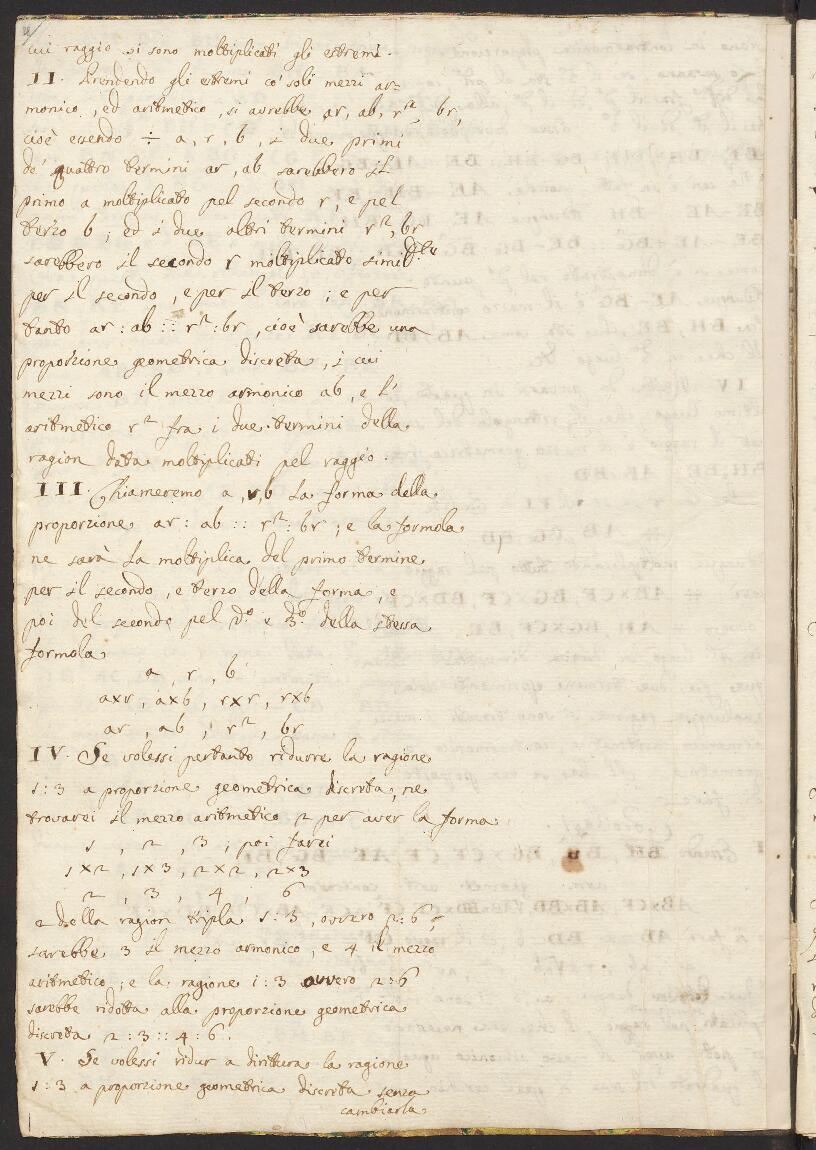 cui raggio si sono moltiplicati gli estremi.
II. Prendendo gli estremi co' soli mezzi ar=
monico, ed aritmetico, si avrebbe ar, ab, r², br,
cioè essendo ÷ a, r, b, i due primi
de' quattro termini ar, ab sarebbero il
primo a moltiplicato pel secondo r, e pel
terzo b; ed i due altri termini r², br
sarebbero il secondo r moltiplicato simil
per il secondo, e per il terzo; e per
tanto ar : ab :: r² : br, cioè sarebbe una
proporzione geometrica discreta, i cui
mezzi sono il mezzo armonico ab, e l'
aritmetico r² fra i due termini della
ragion data moltiplicati pel raggio.
III. Chiameremo a, r, b la forma della
proporzione ar : ab :: r² : br; e la formola
ne sarà la moltiplica del primo termine
per il secondo, e terzo della forma, e
poi del secondo pel d.º e 3.º della stessa
formola
a, r, b
a×r, a×b, r×r, r×b
ar, ab, r², br
IV. Se volessi pertanto ridurre la ragione
1 : 3 a proporzione geometrica discreta, ne
trovarei il mezzo aritmetico 2 per aver la forma
1, 2, 3; poi farei
1×2, 1×3, 2×2, 2×3
2, 3, 4, 6
e della ragion tripla 1 : 3, ovvero 2 : 6
sarebbe 3 il mezzo armonico, e 4 il mezzo
aritmetico; e la ragione 1 : 3 ovvero 2 : 6
sarebbe ridotta alla proporzione geometrica
discreta 2 : 3 :: 4 : 6.
V. Se volessi ridur a dirittura la ragione
1 : 3 a proporzione geometrica discreta senza
cambiarla